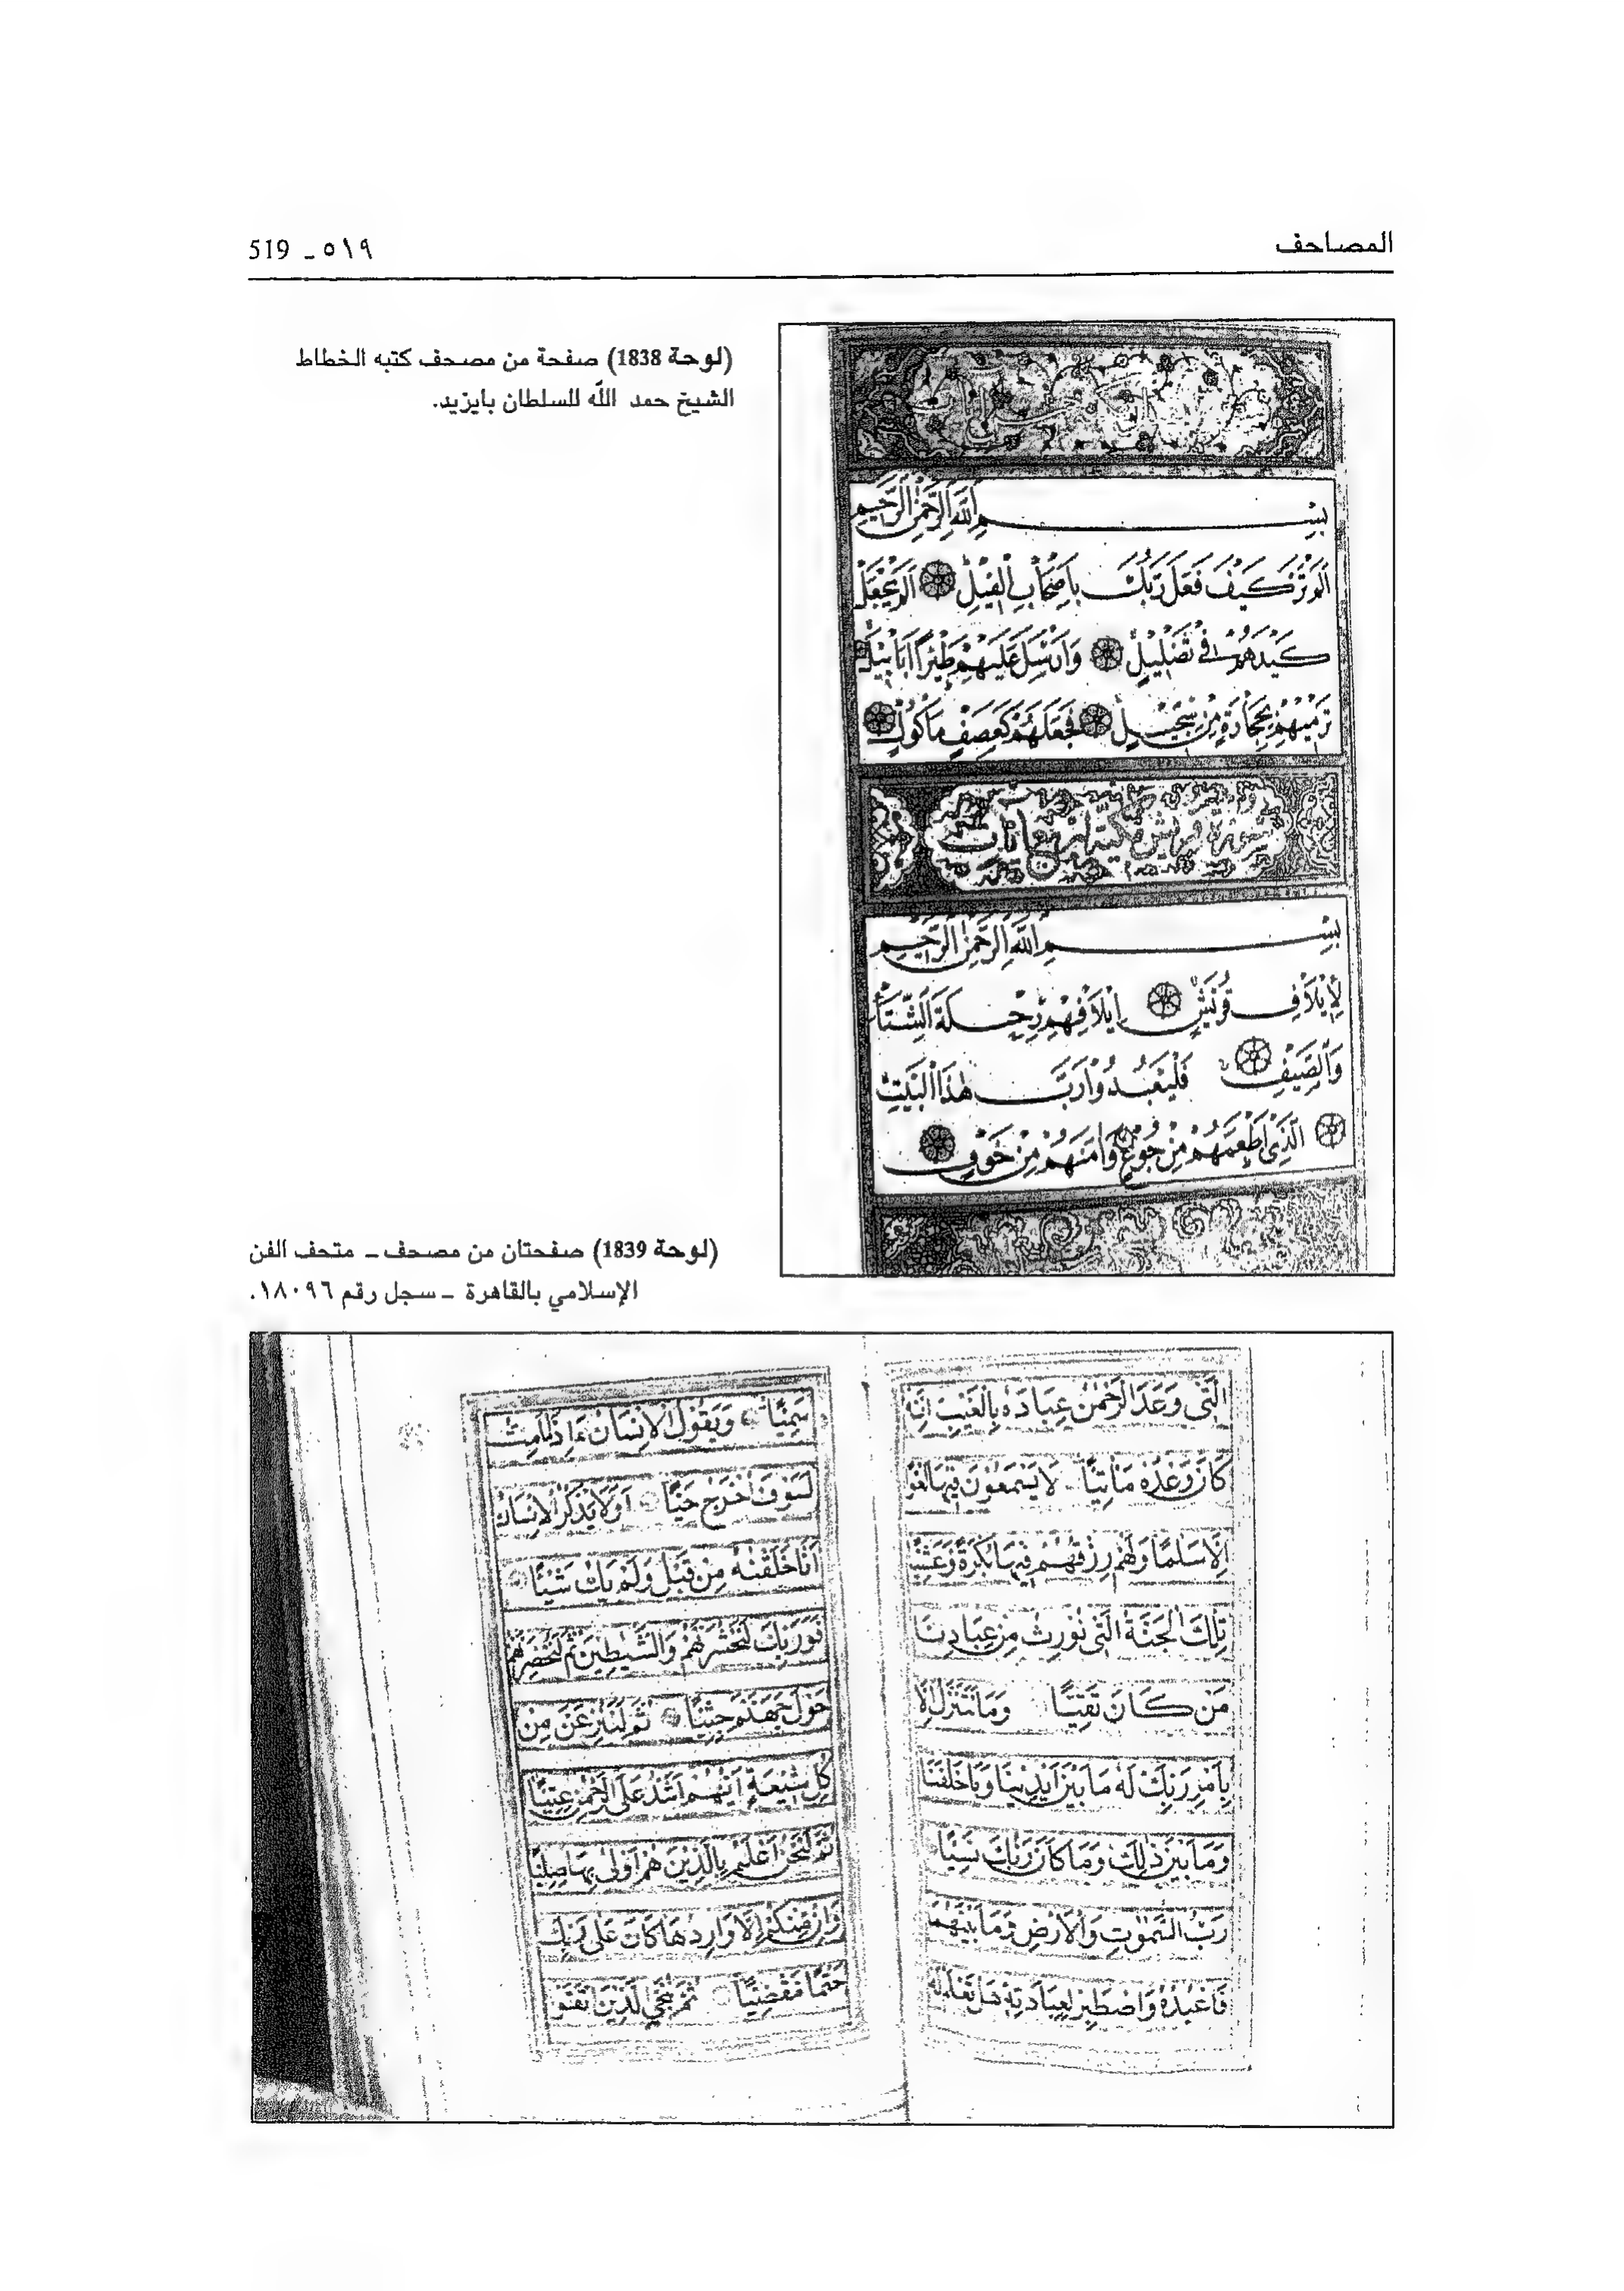 المصاحف
٥١٩ - 519
(لوحة 1838) صفحة من مصحف كتبه الخطاط
الشيخ حمد الله للسلطان بايزيد.
بسم الله الرحمن الرحيم
الم تر كيف فعل ربك باصحاب الفيل الم يجعل
كيدهم في تضليل وارسل عليهم طيرا ابابيل
ترميهم بحجارة من سجيل فجعلهم كعصف ماكول
سورة قريش مكية اربع ايات
بسم الله الرحمن الرحيم
لايلاف قريش ايلافهم رحلة الشتاء
والصيف فليعبدوا رب هذا البيت
الذي اطعمهم من جوع وامنهم من خوف
(لوحة 1839) صفحتان من مصحف - متحف الفن
الإسلامي بالقاهرة - سجل رقم ١٨٠٩٦.
التي وعد الرحمن عباده بالغيب انه
كان وعده ماتيا لا يسمعون فيها لغوا
الا سلما ولهم رزقهم فيها بكرة وعشيا
تلك الجنة التي نورث من عبادنا
من كان تقيا وما نتنزل الا
بامر ربك له ما بين ايدينا وما خلفنا
وما بين ذلك وما كان ربك نسيا
رب السموت والارض وما بينهما
فاعبده واصطبر لعبادته هل تعلم له
سميا ويقول الانسان ءاذا ما مت
لسوف اخرج حيا اولا يذكر الانسان
انا خلقنه من قبل ولم يك شيئا
فوربك لنحشرنهم والشيطين ثم لنحضرنهم
حول جهنم جثيا ثم لننزعن من
كل شيعة ايهم اشد على الرحمن عتيا
ثم لنحن اعلم بالذين هم اولى بها صليا
وان منكم الا واردها كان على ربك
حتما مقضيا ثم ننجي الذين اتقوا